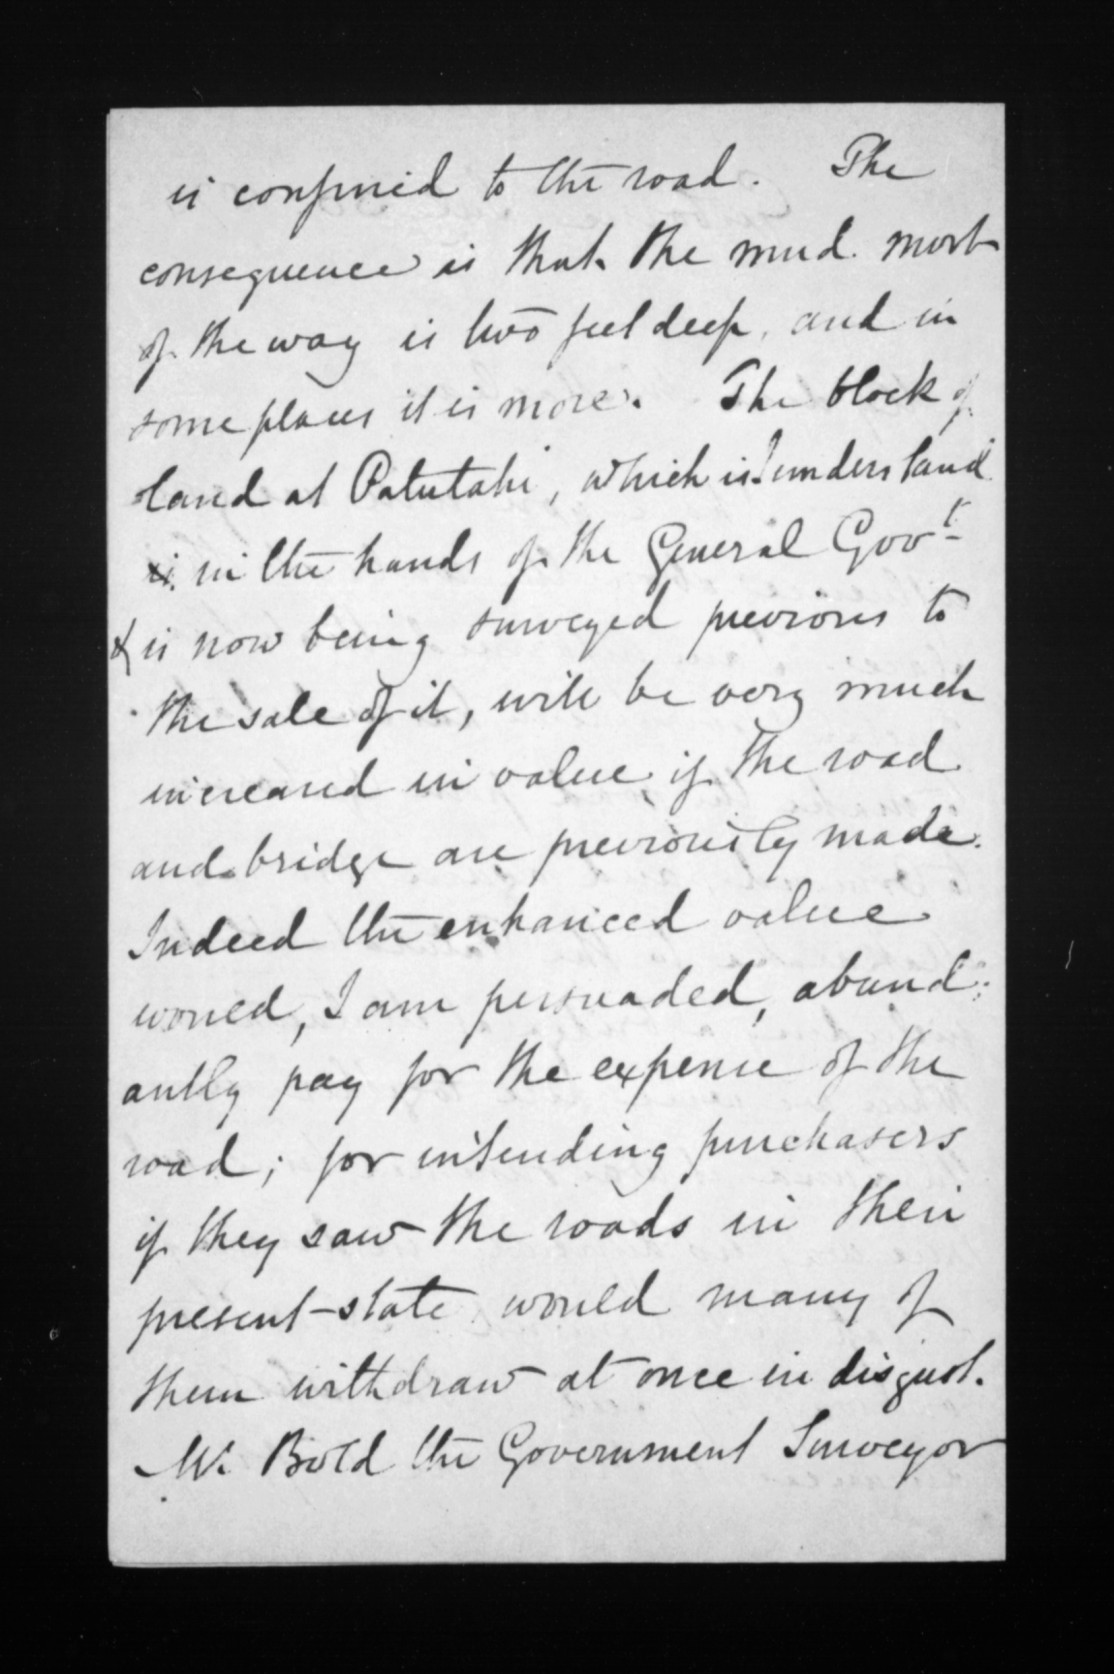 is confined to the road. The
consequence is that the mud most
of the way is two feet deep, and in
some places it is more. The block of
land at Patutahi, which is I understand
is in the hands of the General Govt
& is now being surveyed previous to
the sale of it, will be very much
increased in value if the road
and bridge are previously made.
Indeed the enhanced value
would, I am persuaded, abund:
antly pay for the expense of the
road; for intending purchasers
if they saw the roads in their
present state would many of
them withdraw at once in disgust.
Mr. Bold the Government Surveyor